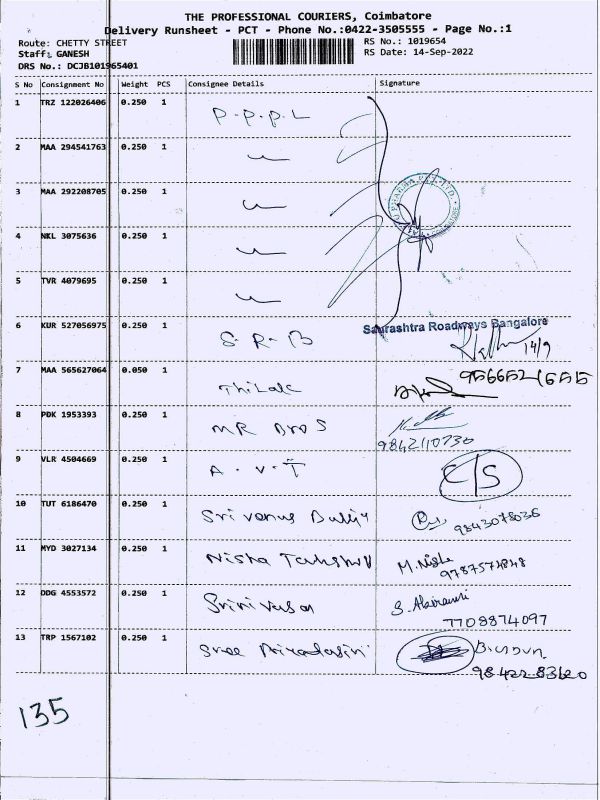 THE PROFESSIONAL COURIERS, Coimbatore
Delivery Runsheet - PCT - Phone No.:0422-3505555 - Page No.:1
Route: CHETTY STREET
RS No.: 1019654
Staff: GANESH
RS Date: 14-Sep-2022
DRS No.: DCJB101965401
S No Consignment No Weight PCS Consignee Details Signature
1 TRZ 122026406 0.250 1 P.P.P.L
2 MAA 294541763 0.250 1
3 MAA 292208705 0.250 1
PHARMA PVT. LTD.
4 NKL 3075636 0.250 1
5 TVR 4079695 0.250 1
6 KUR 527056975 0.250 1 S.R.B Saurashtra Roadways Bangalore
14/9
7 MAA 565627064 0.050 1 Thilak
8 PDK 1953393 0.250 1 MR Bros
9842110730
9 VLR 4504669 0.250 1 A.V.T C/S
10 TUT 6186470 0.250 1 Sri venus
9843078036
11 MYD 3027134 0.250 1 Nisha M. Nisha
9787574848
12 DDG 4553572 0.250 1 Srinivasan S.
7708874097
13 TRP 1567102 0.250 1 Sree
98422 83620
135